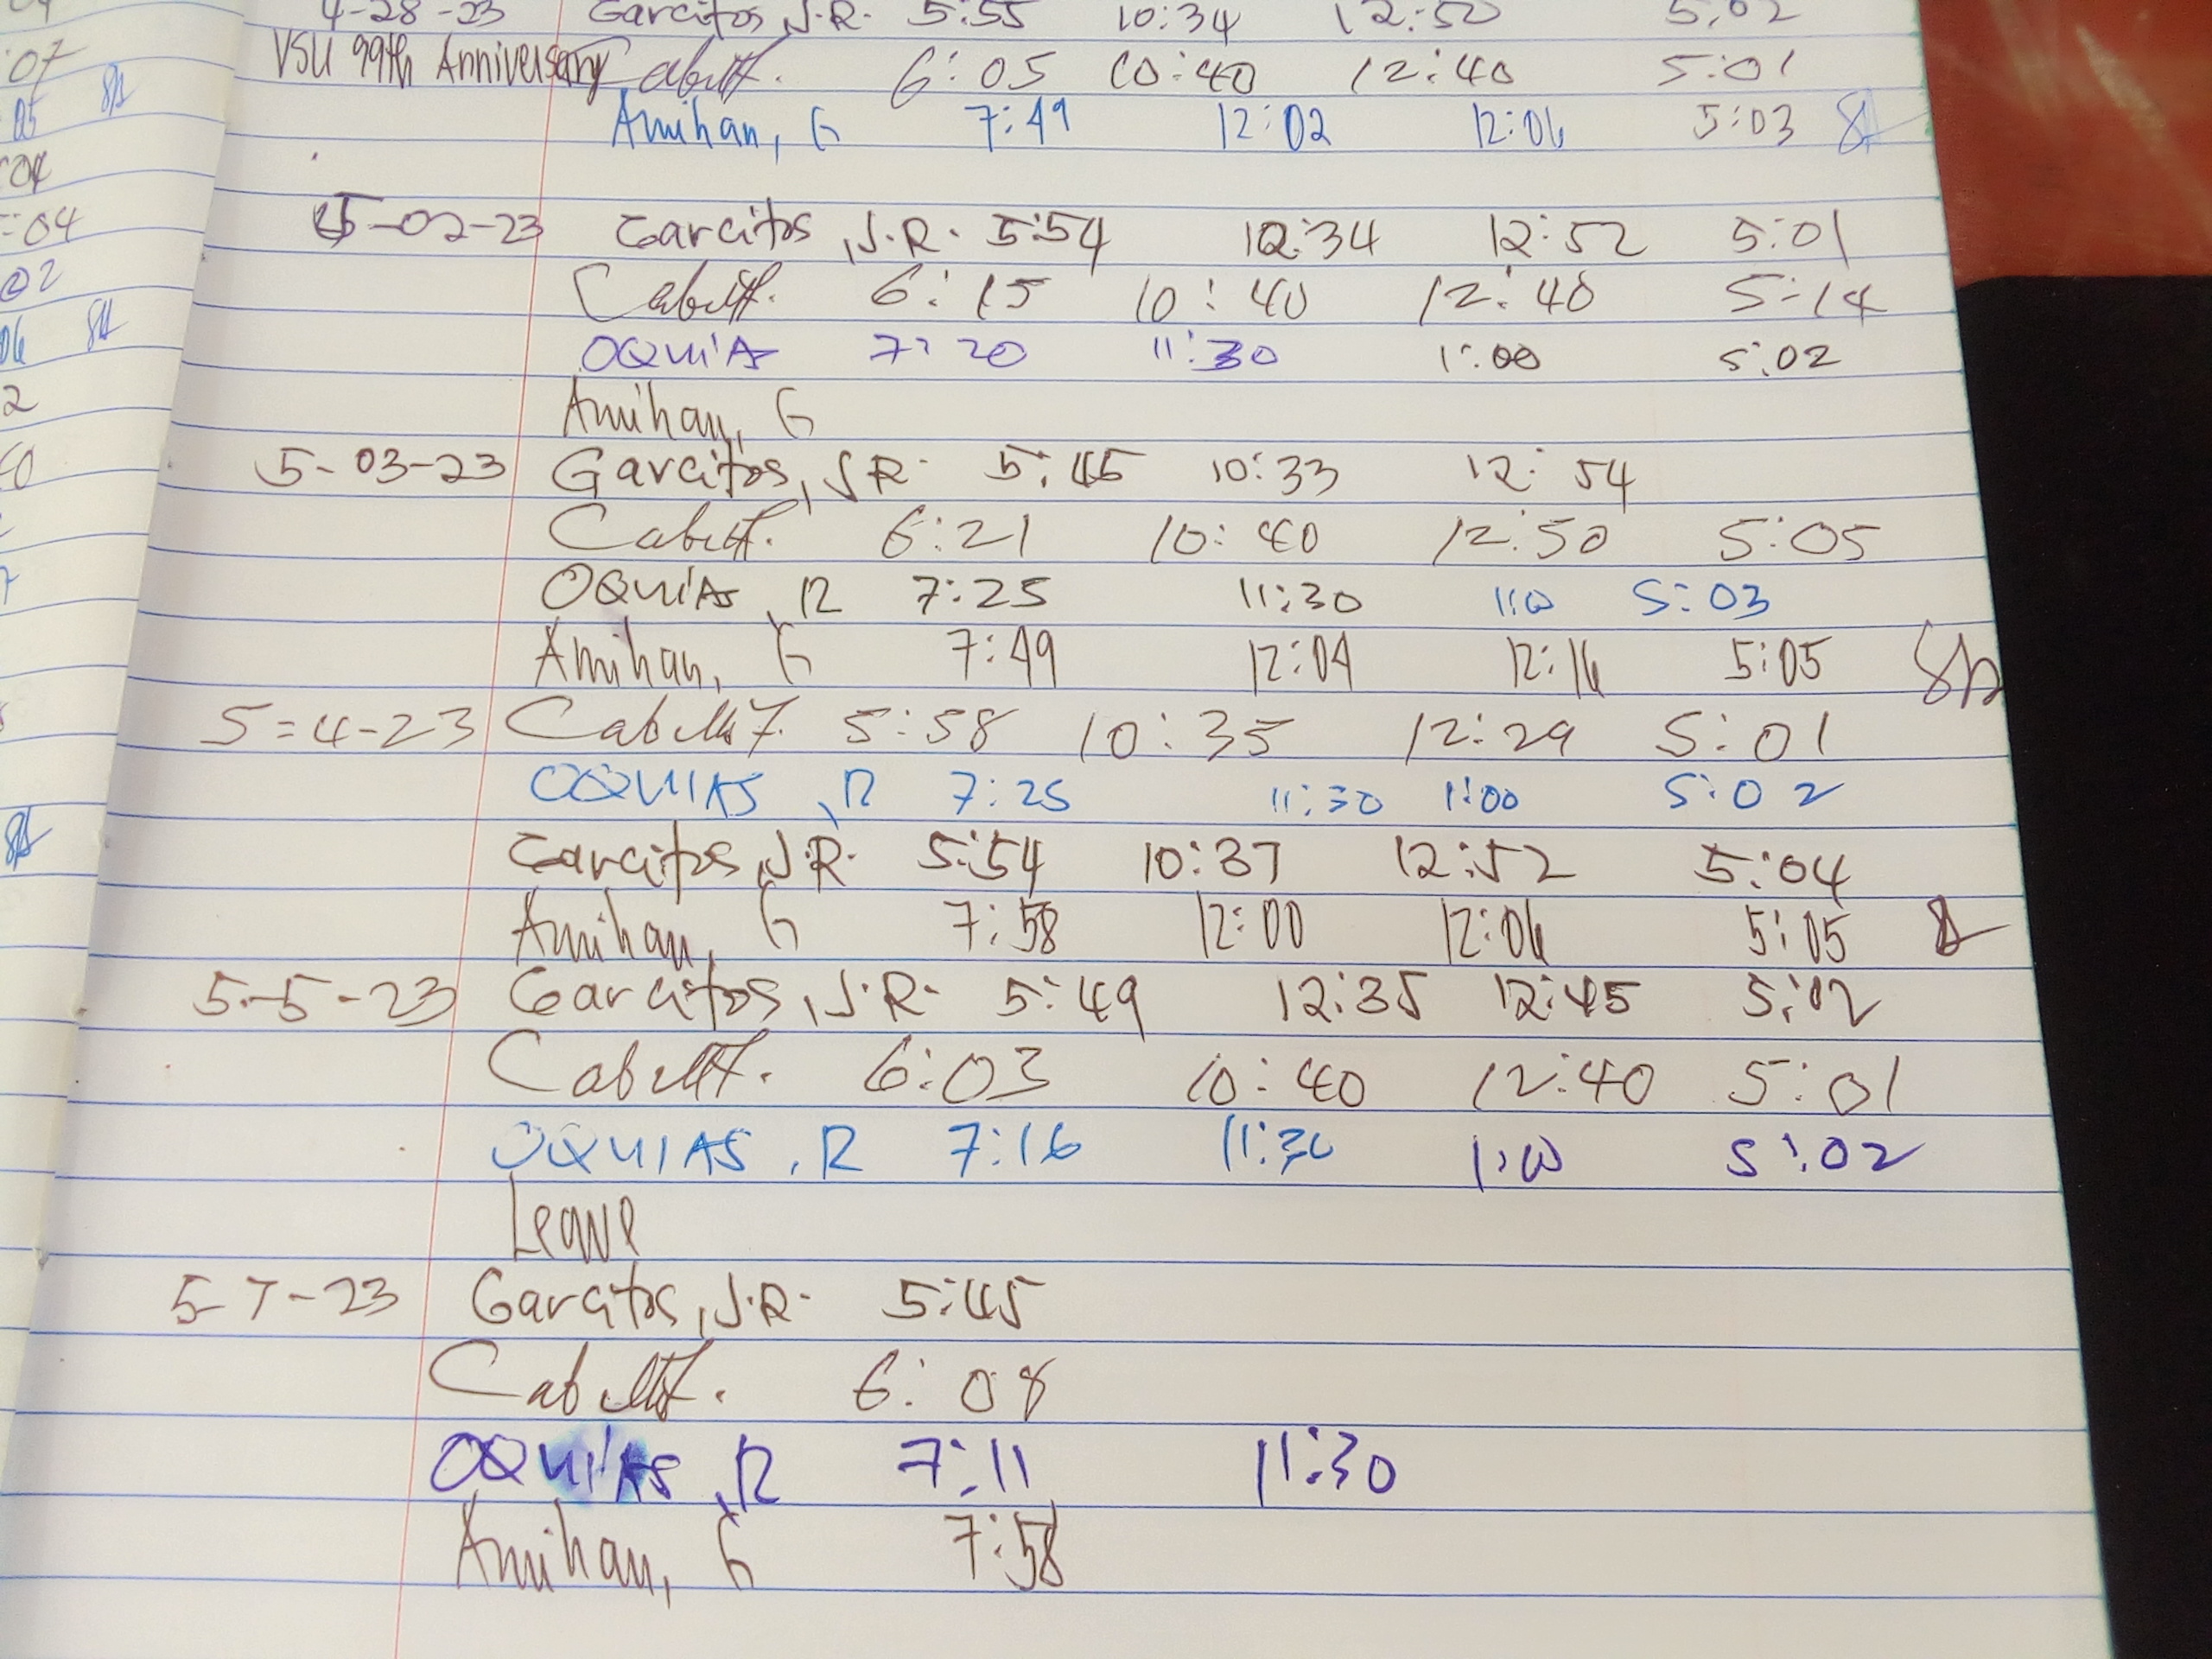 4-28-23 Garcitos, J.R. 5:55 10:34 12:50 5:02
VSU 99th Anniversary 6:05 10:40 12:40 5:01
Amihan, G 7:49 12:02 12:06 5:03
5-02-23 Garcitos, J.R. 5:54 12:34 12:52 5:01
6:15 10:40 12:40 5:14
OQUIAS 7:20 11:30 1:00 5:02
Amihan, G
5-03-23 Garcitos, J R. 5:45 10:33 12:54
6:21 10:40 12:50 5:05
OQUIAS, R 7:25 11:30 1:00 5:03
Amihan, G 7:49 12:04 12:16 5:05
5-4-23 5:58 10:35 12:29 5:01
OQUIAS, R 7:25 11:30 1:00 5:02
Garcitos, J.R. 5:54 10:37 12:52 5:04
Amihan, G 7:58 12:00 12:06 5:05
5-5-23 Garcitos, J.R. 5:49 12:35 12:45 5:02
6:03 10:40 12:40 5:01
OQUIAS, R 7:16 11:30 1:00 5:02
Leave
5-7-23 Garcitos, J.R. 5:45
6:08
OQUIAS, R 7:11 11:30
Amihan, G 7:58